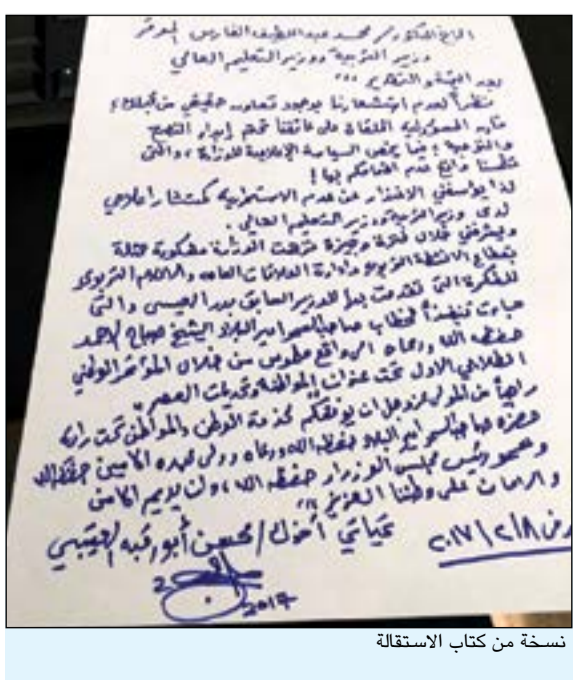 الأخ الدكتور / محمد عبداللطيف الفارس الموقر
وزير التربية ووزير التعليم العالي
بعد التحية والتقدير ،،،
نظراً لعدم استشعارنا بوجود تعاون حقيقي من قبلكم ؛
فإن المسؤولية الملقاة على عاتقنا تحتم إبداء النصح
والتوجيه ؛ فيما يخص السياسة الإعلامية للوزارة ، والتي
لمسنا واقع عدم اهتمامكم بها !
لذا يؤسفني الاعتذار عن عدم الاستمرار كمستشار إعلامي
لدى وزير التربية ووزير التعليم العالي .
ويشرفني خلال فترة وجيزة الوزارة مشكورة ممثلة
بقطاع الأنشطة التربوية وإدارة العلاقات العامة والإعلام التربوي
للفكرة التي تقدمت بها للوزير السابق بدر العيسى والتي
جاءت تنفيذاً لخطاب صاحب السمو أمير البلاد الشيخ صباح الأحمد
حفظه الله ورعاه إلى واقع ملموس من خلال المؤتمر الوطني
الطلابي الأول تحت عنوان "المواطنة وتحديات العصر"
راجياً من المولى عز وجل أن يوفقكم لخدمة الوطن والمواطن تحت راية
حضرة صاحب السمو أمير البلاد حفظه الله ورعاه وولي عهده الأمين حفظه الله
وسمو رئيس مجلس الوزراء حفظه الله ، وأن يديم الأمن
والأمان على وطننا العزيز ،،،
تحياتي أخوك / محسن أبورقبه العتيبي
٢٠١٧/٢/٨
2017
نسخة من كتاب الاستقالة